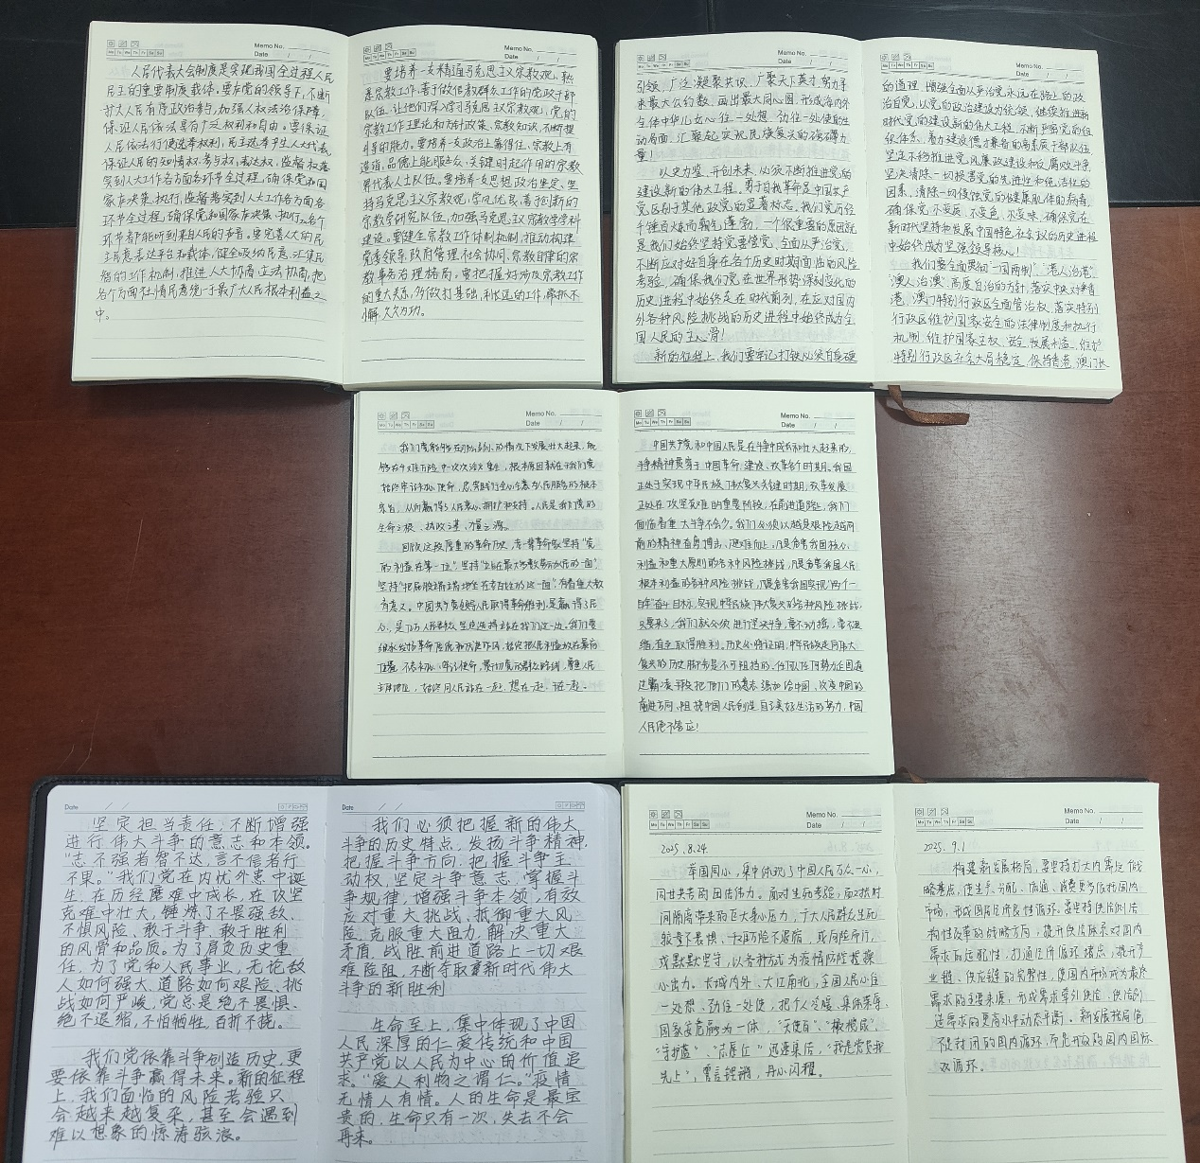 Memo No.
Mo Tu We Th Fr Sa Su
Date / /
人民代表大会制度是实现我国全过程人民
民主的重要制度载体。要在党的领导下,不断
扩大人民有序政治参与,加强人权法治保障,
保证人民依法享有广泛权利和自由。要保证
人民依法行使选举权利,民主选举产生人大代表,
保证人民的知情权、参与权、表达权、监督权落
实到人大工作各方面各环节全过程,确保党和国
家在决策、执行、监督落实到人大工作各方面各
环节全过程,确保党和国家在决策、执行、各个
环节都能听到来自人民的声音。要完善人大的民
主民意表达平台和载体,健全吸纳民意、汇集民
智的工作机制,推进人大协商、立法协商,把
各个方面社情民意统一于最广大人民根本利益之
中。
Memo No.
Mo Tu We Th Fr Sa Su
Date / /
要培养一支精通马克思主义宗教观、熟
悉宗教工作、善于做信教群众工作的党政干部
队伍,让他们深入学习马克思主义宗教观、党的
宗教工作理论和方针政策、宗教知识,不断提
升导的能力。要培养一支政治上靠得住、宗教上有
造诣、品德上能服众、关键时起作用的宗教
界代表人士队伍。要培养一支思想政治坚定、坚
持马克思主义宗教观、学风优良、善于创新的
宗教学研究队伍,加强马克思主义宗教学学科
建设。要健全宗教工作体制机制,推动构建
党委领导、政府管理、社会协同、宗教自律的宗
教事务治理格局。要把握好涉及宗教工作
的重大关系,多做打基础、利长远的工作,常抓不
懈、久久为功。
Memo No.
Mo Tu We Th Fr Sa Su
Date / /
引领、广泛凝聚共识、广聚天下英才,努力寻
求最大公约数、画出最大同心圆,形成海内外
全体中华儿女心往一处想、劲往一处使的生
动局面,汇聚起实现民族复兴的磅礴力
量!
以史为鉴、开创未来,必须不断推进党的
建设新的伟大工程。勇于自我革命是中国共产
党区别于其他政党的显著标志。我们党历经
千锤百炼而朝气蓬勃,一个很重要的原因就
是我们始终坚持党要管党、全面从严治党,
不断应对好自身在各个历史时期面临的风险
考验,确保我们党在世界形势深刻变化的
历史进程中始终走在时代前列,在应对国内
外各种风险挑战的历史进程中始终成为全
国人民的主心骨!
新的征程上,我们要牢记打铁必须自身硬
Memo No.
Mo Tu We Th Fr Sa Su
Date / /
的道理,增强全面从严治党永远在路上的政
治自觉,以党的政治建设为统领,继续推进新
时代党的建设新的伟大工程,不断严密党的组
织体系,着力建设德才兼备的高素质干部队伍
坚定不移推进党风廉政建设和反腐败斗争,
坚决清除一切损害党的先进性和纯洁性的
因素,清除一切侵蚀党的健康肌体的病毒,
确保党不变质、不变色、不变味,确保党在
新时代坚持和发展中国特色社会主义的历史进程
中始终成为坚强领导核心!
我们要全面贯彻“一国两制”、“港人治港”、
“澳人治澳”、高度自治的方针,落实中央对香
港、澳门特别行政区全面管治权,落实特别
行政区维护国家安全的法律制度和执行
机制,维护国家主权、安全、发展利益,维护
特别行政区社会大局稳定,保持香港、澳门长
Memo No.
Mo Tu We Th Fr Sa Su
Date / /
我们党能够在那么弱小的情况下发展壮大起来,能
够在千难万险中一次次浴火重生,根本原因就在于我们党
始终牢记初心使命,忠实践行全心全意为人民服务的根本
宗旨,从而赢得了人民衷心拥护和支持。人民是我们党的
生命之根、执政之基、力量之源。
回顾这段厚重的革命历史,老一辈革命家坚持“党
的利益在第一位”,坚持“站在最大多数劳动人民的一面”,
坚持“把屁股端端地坐在老百姓的这一面”,有着重大教
育意义。中国共产党领导人民取得革命胜利,是赢得了民
心,是亿万人民群众坚定选择站在我们这一边。我们要
继承发扬革命传统和优良作风,始终把人民利益放在最高
位置,不忘初心、牢记使命,贯彻党的群众路线,尊重人民
主体地位,始终同人民站在一起、想在一起、干在一起。
Memo No.
Mo Tu We Th Fr Sa Su
Date / /
中国共产党和中国人民是在斗争中成长和壮大起来的,
斗争精神贯穿于中国革命、建设、改革各个时期。我国
正处于实现中华民族伟大复兴关键时期,改革发展
正处在攻坚克难的重要阶段,在前进道路上,我们
面临着重大斗争不会少。我们必须以越是艰险越向
前的精神奋勇搏击、迎难而上,凡是危害我国核心
利益和重大原则的各种风险挑战,凡是危害我国人民
根本利益的各种风险挑战,凡是危害我国实现“两个一
百年”奋斗目标、实现中华民族伟大复兴的各种风险挑战,
只要来了,我们就必须进行坚决斗争,毫不动摇,毫不退
缩,直至取得胜利。历史必将证明,中华民族走向伟大
复兴的历史脚步是不可阻挡的。任何人任何势力企图通
过霸凌手段把他们的意志强加给中国、改变中国的
前进方向、阻挠中国人民创造自己美好生活的努力,中国
人民绝不答应!
Date / /
坚定担当责任,不断增强
进行伟大斗争的意志和本领。
“志不强者智不达,言不信者行
不果。”我们党在内忧外患中诞
生,在历经磨难中成长,在攻坚
克难中壮大,锤炼了不畏强敌、
不惧风险、敢于斗争、敢于胜利
的风骨和品质。为了肩负历史重
任,为了党和人民事业,无论敌
人如何强大、道路如何艰险、挑
战如何严峻,党总是绝不畏惧、
绝不退缩,不怕牺牲,百折不挠。
我们党依靠斗争创造历史,更
要依靠斗争赢得未来。新的征程
上,我们面临的风险考验只
会越来越复杂,甚至会遇到
难以想象的惊涛骇浪。
Date / /
我们必须把握新的伟大
斗争的历史特点,发扬斗争精神,
把握斗争方向,把握斗争主
动权,坚定斗争意志,掌握斗
争规律,增强斗争本领,有效
应对重大挑战、抵御重大风
险、克服重大阻力、解决重大
矛盾,战胜前进道路上一切艰
难险阻,不断夺取新时代伟大
斗争的新胜利
生命至上,集中体现了中国
人民深厚的仁爱传统和中国
共产党以人民为中心的价值追
求。“爱人利物之谓仁。”疫情
无情人有情。人的生命是最宝
贵的,生命只有一次,失去不会
再来。
Memo No.
Mo Tu We Th Fr Sa Su
Date / /
2025.8.24.
举国同心,集中体现了中国人民万众一心、
同甘共苦的团结伟力。面对生死考验,面对长时
间隔离带来的巨大身心压力,广大人民群众生死
较量不畏惧、千难万险不退缩,或向险而行,
或默默坚守,以各种方式为疫情防控操
心出力。长城内外、大江南北,全国人民心往
一处想、劲往一处使,把个人冷暖、集体荣辱、
国家安危融为一体,“天使白”、“橄榄绿”、
“守护蓝”、“志愿红”迅速集结,“我是党员我
先上”,誓言铿锵,丹心闪耀。
Memo No.
Mo Tu We Th Fr Sa Su
Date / /
2025.9.1
构建新发展格局,要坚持扩大内需这个战
略基点,使生产、分配、流通、消费更多依托国内
市场,形成国民经济良性循环。要坚持供给侧结
构性改革的战略方向,提升供给体系对国内
需求的适配性,打通经济循环堵点,提升产
业链、供应链的完整性,使国内市场成为最终
需求的主要来源,形成需求牵引供给、供给创
造需求的更高水平动态平衡。新发展格局绝
不是封闭的国内循环,而是开放的国内国际
双循环。